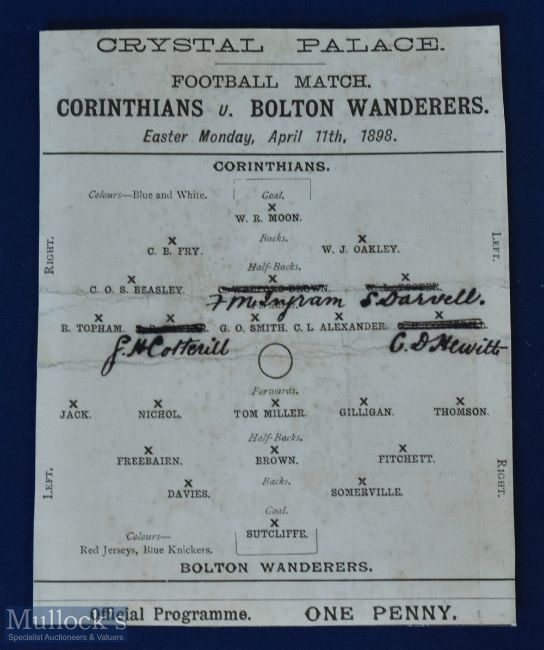 CRYSTAL PALACE.
FOOTBALL MATCH.
CORINTHIANS v. BOLTON WANDERERS.
Easter Monday, April 11th, 1898.
CORINTHIANS.
Colours—Blue and White.
Goal.
X
W. R. MOON.
RIGHT.
LEFT.
Backs.
X X
C. B. FRY. W. J. OAKLEY.
Half-Backs.
X X X
C. O. S. BEASLEY.
F M Ingram S. Darvell.
X X X X X
R. TOPHAM. G. O. SMITH. C. L. ALEXANDER.
G. H. Cotterill C. D. Hewitt
Forwards.
X X X X X
JACK. NICHOL. TOM MILLER. GILLIGAN. THOMSON.
Half-Backs.
X X X
FREEBAIRN. BROWN. FITCHETT.
LEFT.
RIGHT.
Backs.
X X
DAVIES. SOMERVILLE.
Goal.
X
SUTCLIFFE.
Colours—
Red Jerseys, Blue Knickers.
BOLTON WANDERERS.
Official Programme. ONE PENNY.
Mullock's
Specialist Auctioneers & Valuers